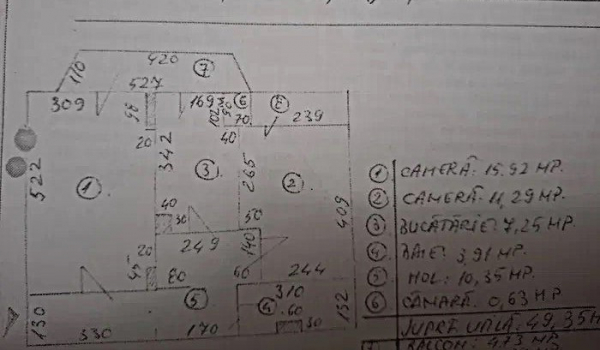 420
110
7
527
309
98
169
102
50
6
70
8
239
20
342
40
522
3
265
1
2
409
40
30
50
249
140
20
50
80
60
244
5
310
4
60
30
130
330
170
152
1 CAMERĂ: 15.92 MP.
2 CAMERĂ: 11,29 MP.
3 BUCĂTĂRIE: 7,25 MP.
4 BAIE: 3,91 MP.
5 HOL: 10,35 MP.
6 CĂMARĂ: 0,63 MP
SUPRF. UTILĂ: 49,35 M
7 BALCON: 4,73 MP